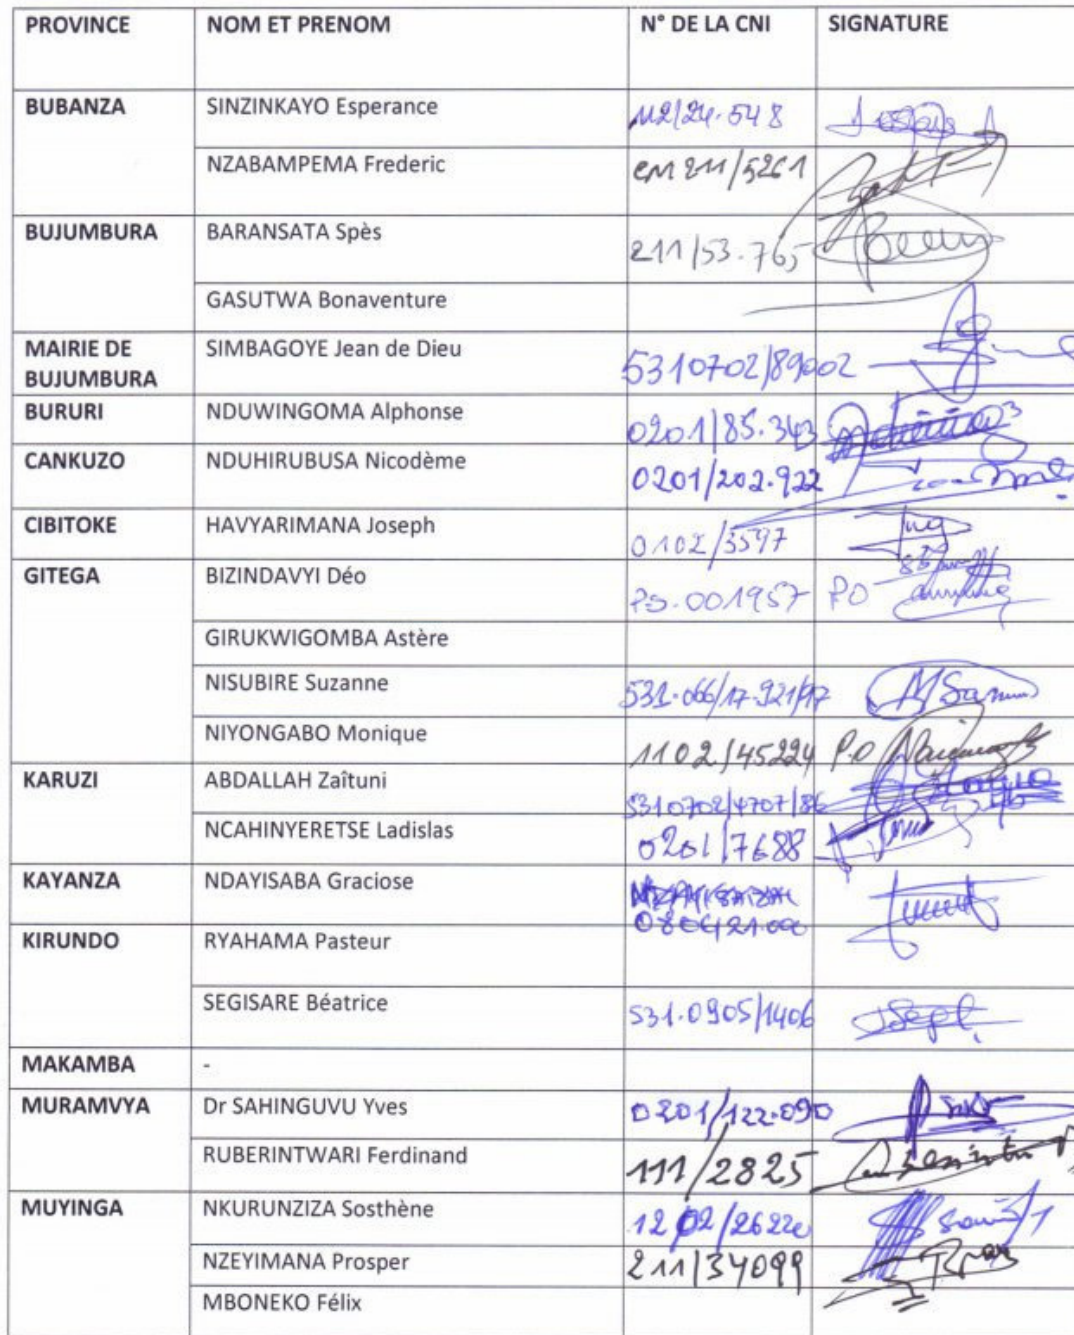 PROVINCE NOM ET PRENOM N° DE LA CNI SIGNATURE
BUBANZA SINZINKAYO Esperance 112/24.548
NZABAMPEMA Frederic 211/5261
BUJUMBURA BARANSATA Spès 211/53.765
GASUTWA Bonaventure
MAIRIE DE BUJUMBURA SIMBAGOYE Jean de Dieu 5310702/89002
BURURI NDUWINGOMA Alphonse 0201/85.343
CANKUZO NDUHIRUBUSA Nicodème 0201/202.922
CIBITOKE HAVYARIMANA Joseph 0102/3597
GITEGA BIZINDAVYI Déo PS.001957 PO
GIRUKWIGOMBA Astère
NISUBIRE Suzanne 531.066/17.921/97
NIYONGABO Monique 1102/45224 P.O
KARUZI ABDALLAH Zaîtuni 5310702/4707/86
NCAHINYERETSE Ladislas 0201/7688
KAYANZA NDAYISABA Graciose
KIRUNDO RYAHAMA Pasteur
SEGISARE Béatrice 531.0905/1406
MAKAMBA -
MURAMVYA Dr SAHINGUVU Yves 0201/122.090
RUBERINTWARI Ferdinand 111/2825
MUYINGA NKURUNZIZA Sosthène
NZEYIMANA Prosper 211/34099
MBONEKO Félix